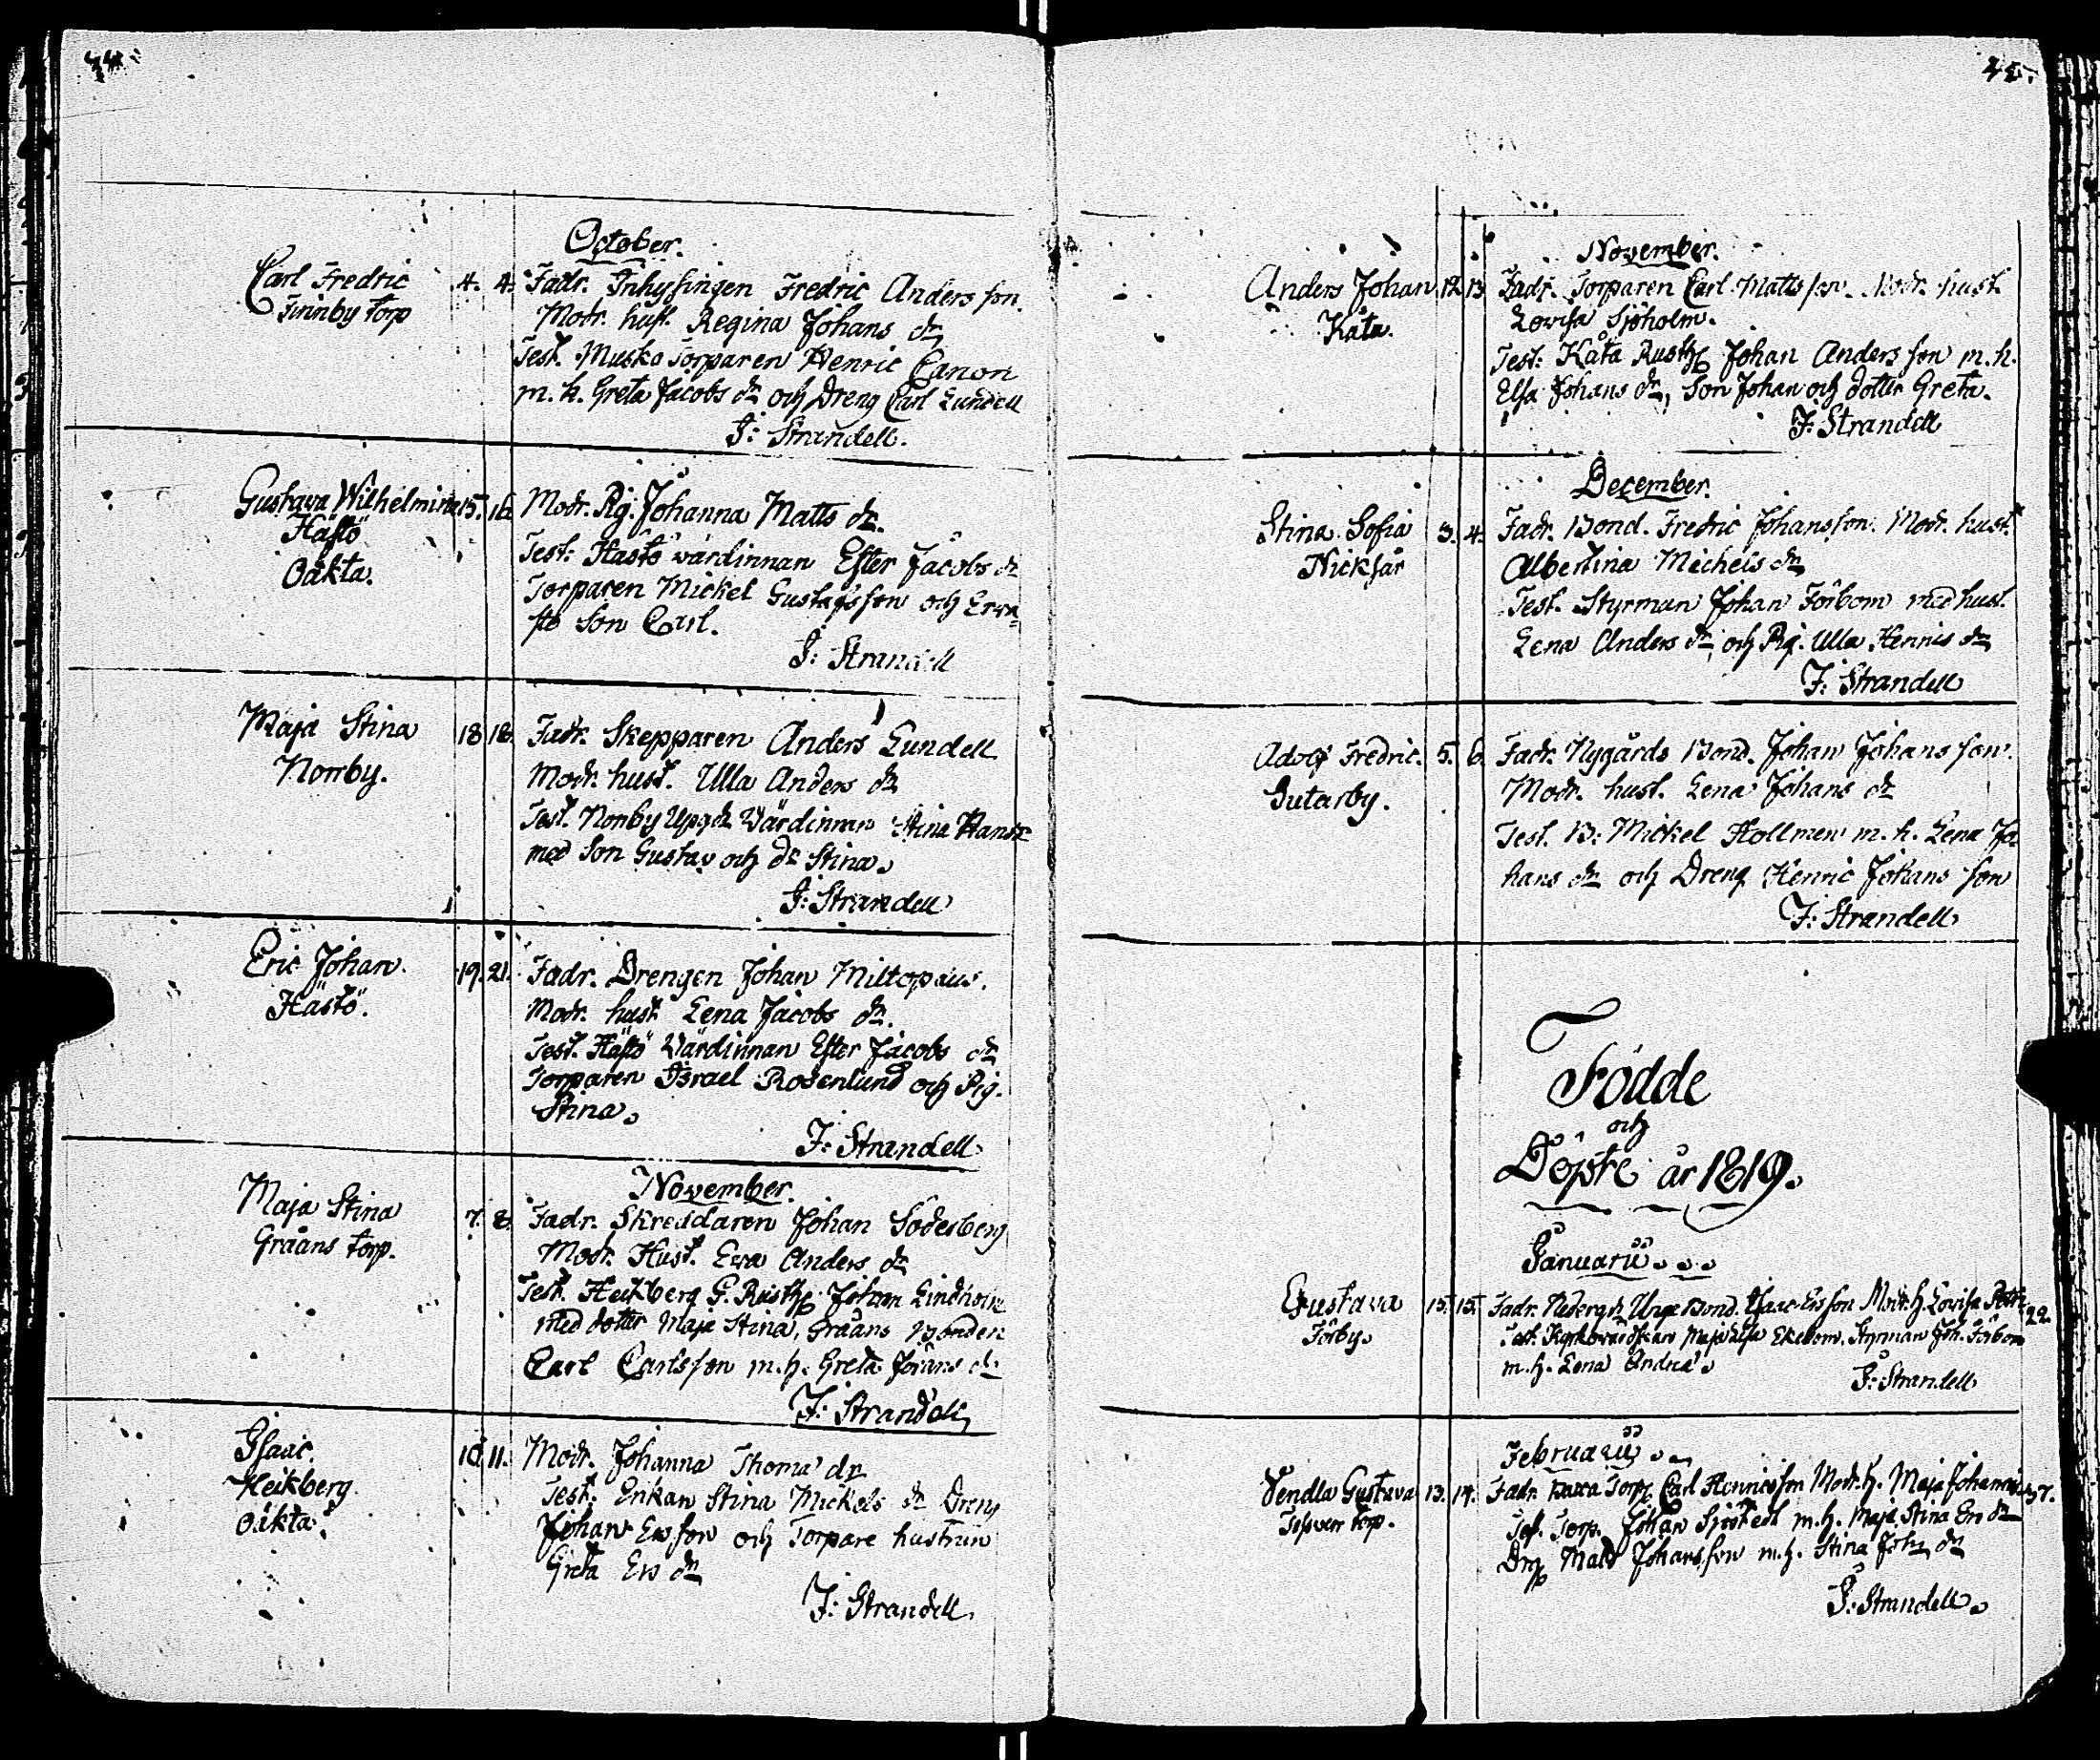 44.
October.
Carl Fredric
Finnby torp
4. 4.
Fadr. Inhysingen Fredric Andersson.
Modr. hust. Regina Johans dr
Test. Musko Torparen Henric Canon
m. h. Greta Jacobs dr och Dreng Carl Lundell
J: Strandell.
Gustava Wilhelmina
Hästö
Oäkta.
15. 16.
Modr. Pig. Johanna Matts dr.
Test: Hästö wärdinnan Ester Jacobs dr
Torparen Mickel Gustafsson och
son Carl.
J: Strandell
Maja Stina
Norrby.
18 18.
Fadr. Skepparen Anders Lundell
Modr. hust. Ulla Anders dr
Test. Norrby Wärdinnan Stina Hansdr
med Son Gustav och dr Stina.
J: Strandell
Eric Johan.
Hästö.
19. 21.
Fadr. Drengen Johan Miltopæus.
Modr. hust. Lena Jacobs dr.
Test. Hästö Wärdinnan Ester Jacobs dr
Torparen Israel Rosenlund och Pig.
Stina.
J: Strandell
November.
Maja Stina
Gråans torp.
7. 8.
Fadr. Skreddaren Johan Söderberg
Modr. Hust. Ewa Anders dr
Test. Heikberg G. Rusth. Johan Lindholm
med dotter Maja Stina, Gråans Bonden
Carl Carlsson m. h. Greta Johans dr
J: Strandell
Isaac.
Heikberg.
Oäkta.
10 11.
Modr. Johanna Thomæ dr
Test: Enkan Stina Mickels dr Dreng
Johan Ersson och Torpare hustrun
Greta Ers dr
J: Strandell.
45.
November.
Anders Johan
Kåta.
12. 13.
Fadr. Torparen Carl Mattsson. Modr. hust.
Lowisa Sjöholm.
Test: Kåta Rusth. Johan Andersson m. h.
Elsa Johans dr, Son Johan och dotter Greta.
J: Strandell
December.
Stina Sofia
Nicksår
3. 4.
Fadr. Bond. Fredric Johansson. Modr. hust.
Albertina Michels dr
Test. Styrman Johan Förbom med hust.
Lena Anders dr, och Pig. Ulla Henrics dr
J: Strandell
Adolf Fredric.
Gutarby.
5. 6.
Fadr. Nygårds Bond. Johan Johansson.
Modr. hust. Lena Johans dr
Test. B: Mickel Hollmen m. h. Lena Jo-
hans dr och Dreng Henric Johansson
J: Strandell
Födde
och
Döpte år 1819.
Januarii
Gustava
Förby.
15. 15.
Fadr. Bond. Isaac Ersson Modr. h. Lovisa 22.
Test. Maja Lisa Ekebom. Styrman Joh. Förbom
m. h. Lena Andræ
J: Strandell
Februarii
Vendla Gustava
torp.
13. 14.
Fadr. Torp. Carl Henricsson Modr. h. Maja Johannis 37.
Test. Torp. Johan Sjöstedt m. h. Maja Stina Ers dr
Drg Mats Johansson m. h. Stina Joh. dr
J: Strandell.